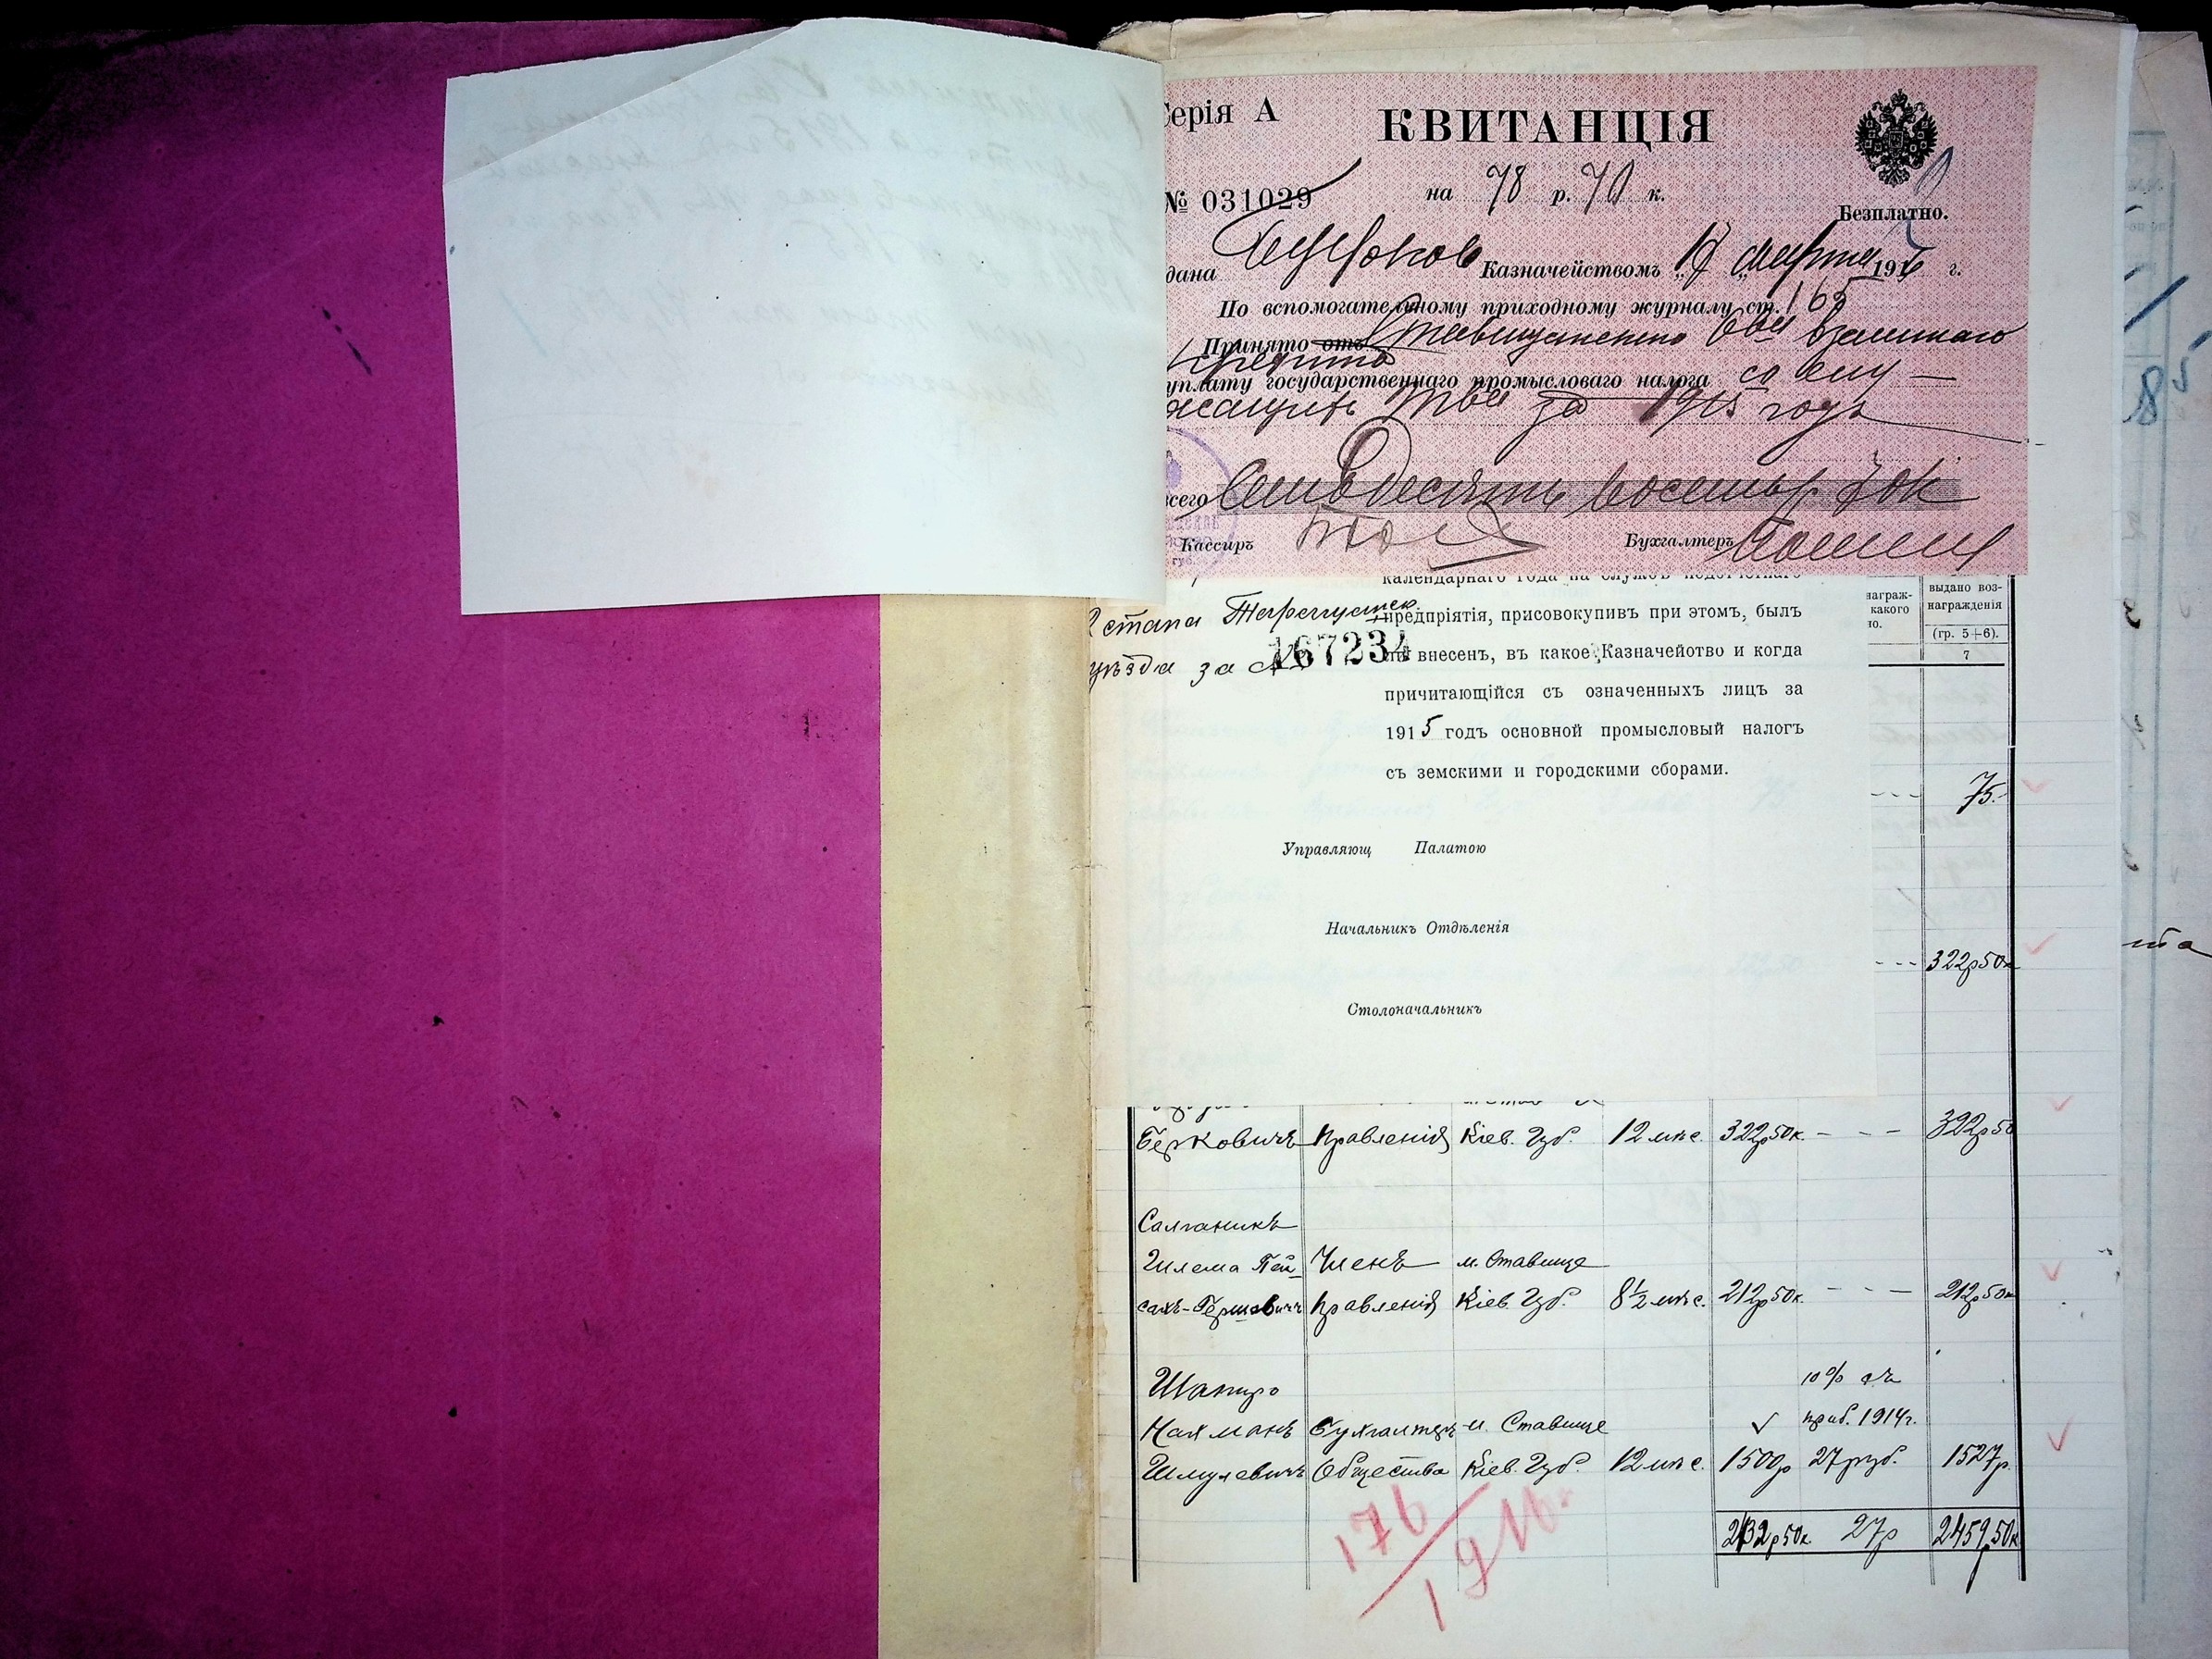 Серія А
КВИТАНЦІЯ
№ 031029
на 78 р. 70 к.
Безплатно.
дана Казначействомъ 19 марта 1916 г.
По вспомогательному приходному журналу ст. 165
Принято отъ Ставищанскаго О-ва Взаимнаго
Кредита
уплату государственнаго промысловаго налога со слу-
жащихъ за 1915 годъ
всего Семьдесятъ восемь р. 70 к
Кассиръ
Бухгалтеръ
календарнаго года на службѣ недотчетнаго
стана Таращанск. предпріятія, присовокупивъ при этомъ, былъ
167234
уѣзда за № ли внесенъ, въ какое Казначейотво и когда
причитающійся съ означенныхъ лицъ за
1915 годъ основной промысловый налогъ
съ земскими и городскими сборами.
Управляющ Палатою
Начальникъ Отдѣленія
Столоначальникъ
награж-
какого
но.
выдано воз-
награжденія
(гр. 5+6).
7
75.-
- - - 322р50к
Берковичъ Правленія Кіев. Губ. 12 мѣс. 322р50к. - - - 322р50
Салганикъ
Шлема Пей- Членъ м. Ставище
сахъ-Гершовичъ Правленія Кіев. Губ. 8½ мѣс. 212р50к. - - - 212р50к
Шапиро 10% съ
Нахманъ Бухгалтеръ м. Ставище ✓ приб. 1914г.
Шмулевичъ Общества Кіев. Губ. 12 мѣс. 1500р 27 руб. 1527р.
2432р50к. 27р 2459р50к
176
1916
85
та